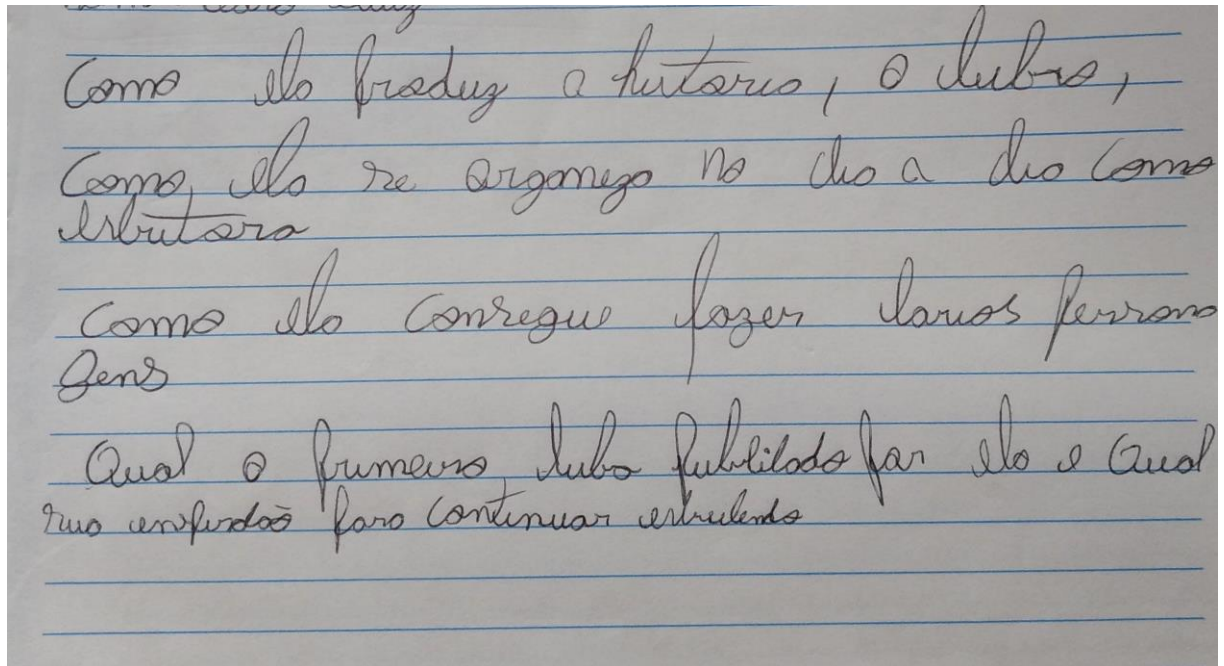 Como ela produz a historia, o livro,
Como, ela se organiza no dia a dia como
escritora
Como ela consegue fazer varios persona
gens
Qual o primeiro livro publicado por ela e Qual
sua inspiração para continuar escrevendo